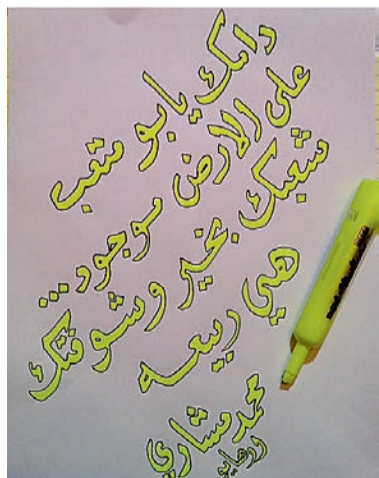 دامك يابو متعب
على الارض موجود...
شعبك بخير وشوفتك
هي ربيعه
محمد مشاري